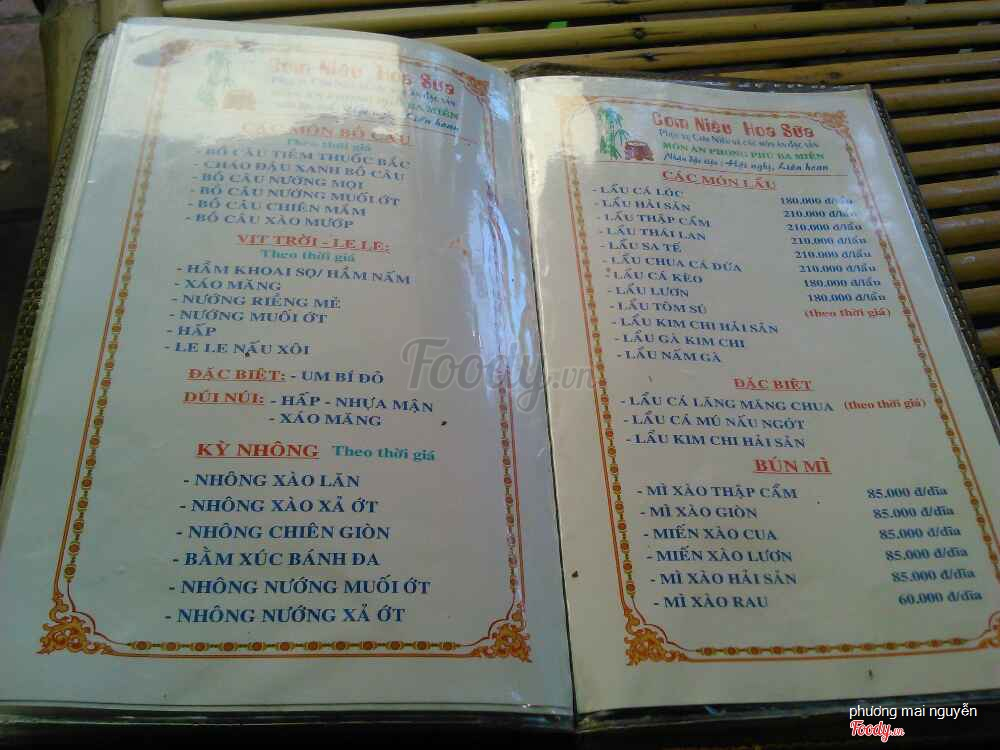 Cơm Niêu Hoa Sữa
Liên hoan
CÁC MÓN BỒ CÂU
Theo thời giá
- BỒ CÂU TIỀM THUỐC BẮC
- CHÁO ĐẬU XANH BỒ CÂU
- BỒ CÂU NƯỚNG MỌI
- BỒ CÂU NƯỚNG MUỐI ỚT
- BỒ CÂU CHIÊN MẮM
- BỒ CÂU XÀO MƯỚP
VỊT TRỜI - LE LE:
Theo thời giá
- HẦM KHOAI SỌ/ HẦM NẤM
- XÁO MĂNG
- NƯỚNG RIỀNG MẺ
- NƯỚNG MUỐI ỚT
- HẤP
- LE LE NẤU XÔI
ĐẶC BIỆT: - UM BÍ ĐỎ
DÚI NÚI: - HẤP - NHỰA MẬN
- XÁO MĂNG
KỲ NHÔNG Theo thời giá
- NHÔNG XÀO LĂN
- NHÔNG XÀO XẢ ỚT
- NHÔNG CHIÊN GIÒN
- BẰM XÚC BÁNH ĐA
- NHÔNG NƯỚNG MUỐI ỚT
- NHÔNG NƯỚNG XẢ ỚT
Cơm Niêu Hoa Sữa
Phục vụ Cơm Niêu và các món ăn đặc sản
MÓN ĂN PHONG PHÚ BA MIỀN
Nhận đặt tiệc : Hội nghị, Liên hoan
CÁC MÓN LẨU
- LẨU CÁ LÓC 180.000 đ/lẩu
- LẨU HẢI SẢN 210.000 đ/lẩu
- LẨU THẬP CẨM 210.000 đ/lẩu
- LẨU THÁI LAN 210.000 đ/lẩu
- LẨU SA TẾ 210.000 đ/lẩu
- LẨU CHUA CÁ DỨA 210.000 đ/lẩu
- LẨU CÁ KÈO 180.000 đ/lẩu
- LẨU LƯƠN 180.000 đ/lẩu
- LẨU TÔM SÚ (theo thời giá)
- LẨU KIM CHI HẢI SẢN
- LẨU GÀ KIM CHI
- LẨU NẤM GÀ
ĐẶC BIỆT
- LẨU CÁ LĂNG MĂNG CHUA (theo thời giá)
- LẨU CÁ MÚ NẤU NGÓT
- LẨU KIM CHI HẢI SẢN
BÚN MÌ
- MÌ XÀO THẬP CẨM 85.000 đ/đĩa
- MÌ XÀO GIÒN 85.000 đ/đĩa
- MIẾN XÀO CUA 85.000 đ/đĩa
- MIẾN XÀO LƯƠN 85.000 đ/đĩa
- MÌ XÀO HẢI SẢN 85.000 đ/đĩa
- MÌ XÀO RAU 60.000 đ/đĩa
Foody.vn
phương mai nguyễn
Foody.vn